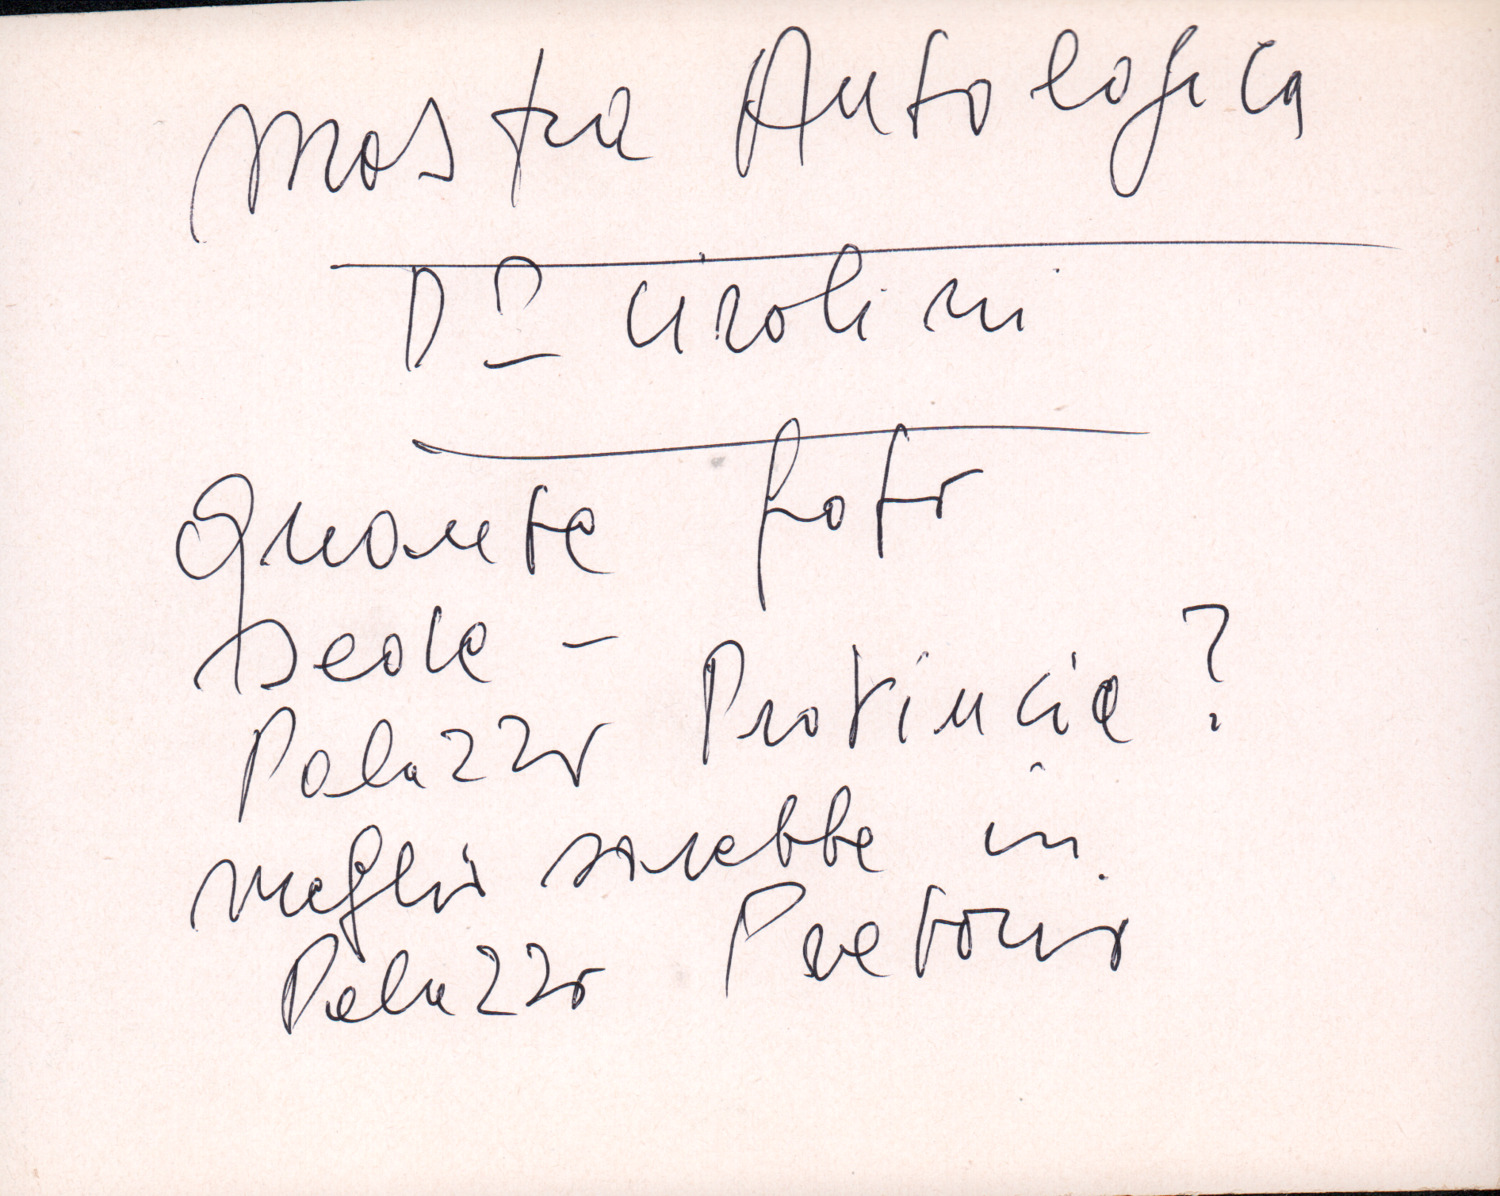 Mostra Antologica
Quante foto
sede –
Palazzo Provincia?
meglio sarebbe in
Palazzo Pretorio